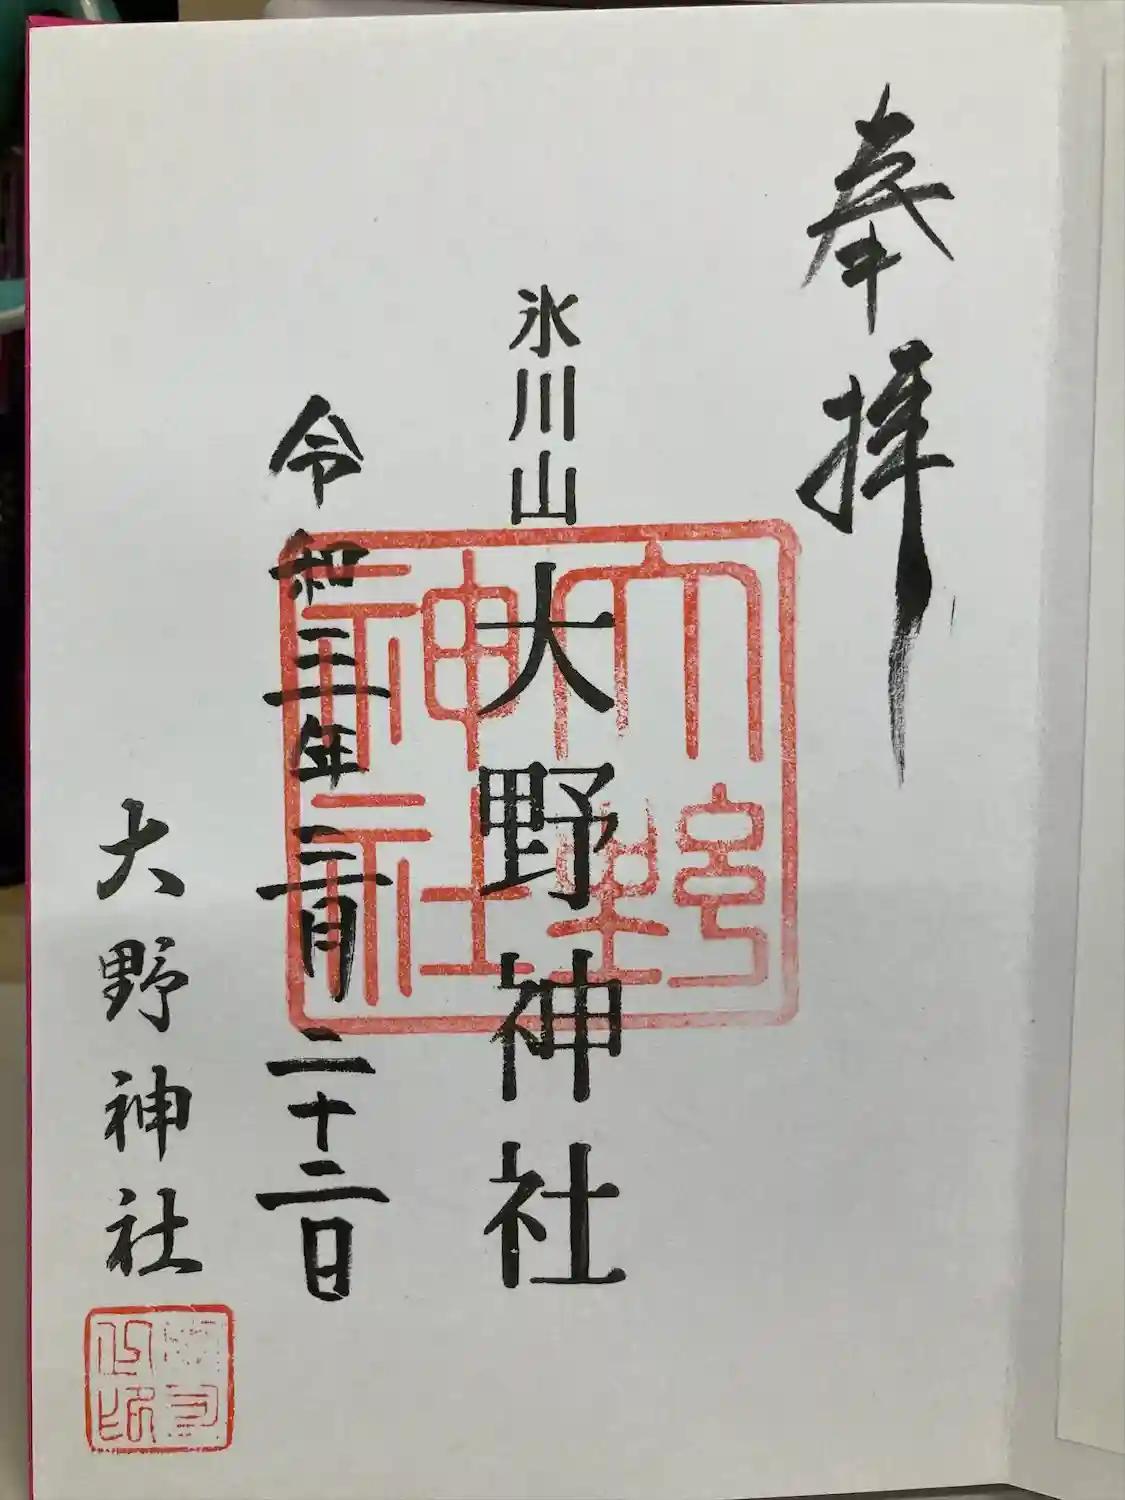 奉拝
氷川山
大野神社
令和三年三月二十二日
大野神社
大野神社